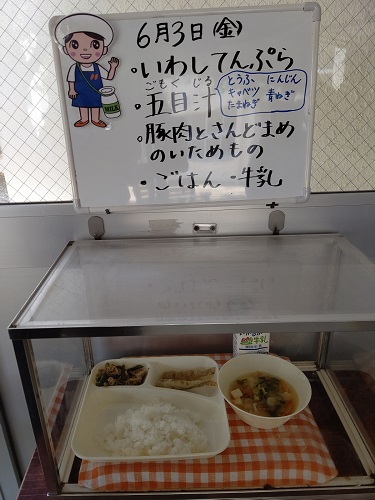 6月3日(金)
・いわしてんぷら
ごもくじる
・五目汁
とうふ にんじん
キャベツ 青ねぎ
たまねぎ
・豚肉とさんどまめ
のいためもの
・ごはん・牛乳
MILK
牛乳